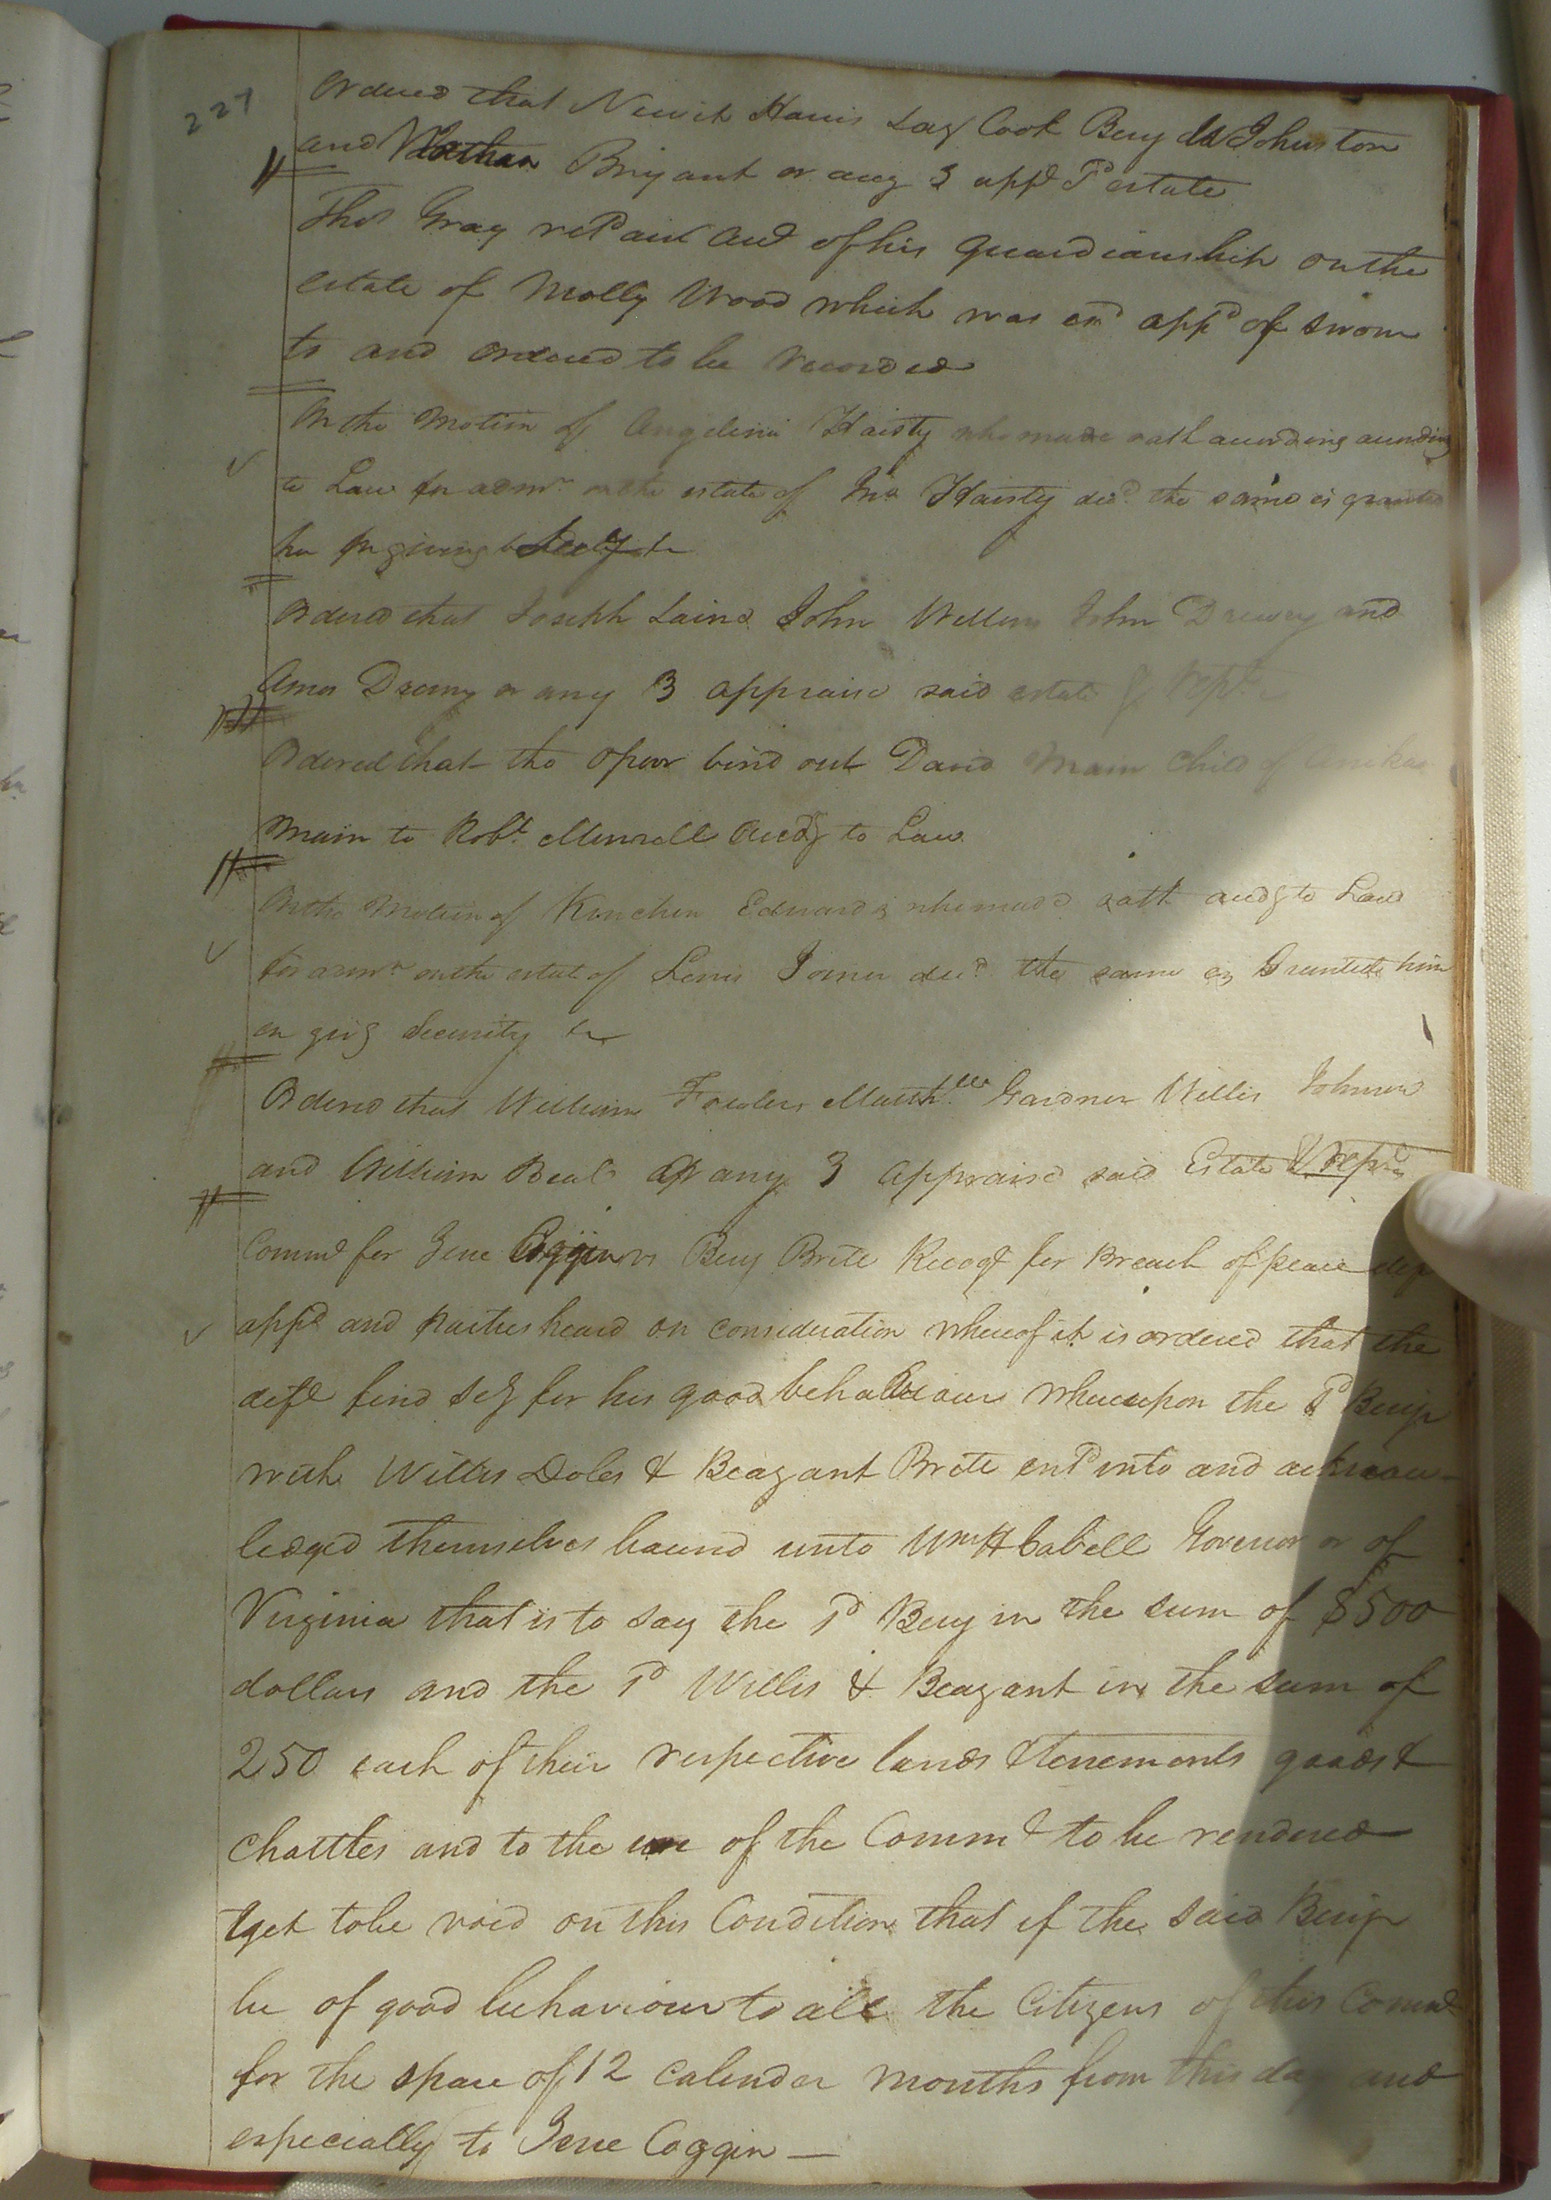 227
Ordered that Newit Harris Lazy Cook Benj W Johnston
and Nathan Briyant or any 3 appe Sd estate
Thos Gray retd an Acct of his guardianship on the
estate of Molly Wood which was exd appd of sworn
to and ordered to be recorded
On the Motion of Angelina Haisty who made oath according according
to Law for admr on the estate of Jno Haisty decd the same is granted
her on giving
Ordered that Joseph Laine John Willers John Drewry and
Amos Drewry or any 3 appraise said estate & rept
Ordered that the Opoor bind out David Main child of
Main to Robt Murrell Accdg to Law
On the Motion of Kinchen Edwards who made oath accdg to Law
for admr on the estate of Lewis Joiner decd the same is Granted him
on givg Security &c
Ordered that William Fowler Matthw Gardner Willis Johnson
and William Beal Or any 3 appraise said Estate & rept
Commd for Jene Coggin vs Benj Brite Recogt for Breach of peace deft
appd and parties heard on consideration whereof it is ordered that the
deft find Scy for his good behaviour whereupon the Sd Benja
with Willis Doles & Beazant Brite entd into and acknow-
ledged themselves bound unto Wm H Cabell Govenor or of
Virginia that is to say the Sd Benj in the sum of $500
dollars and the Sd Willis & Beazant in the sum of
250 each of their respective lands & tenements goods &
Chattles and to the use of the Commd to be rendered
yet to be void on this Condition that if the said Benja
be of good behaviour to all the Citizens of this Commd
for the space of 12 calender months from this day and
especially to Jene Coggin —